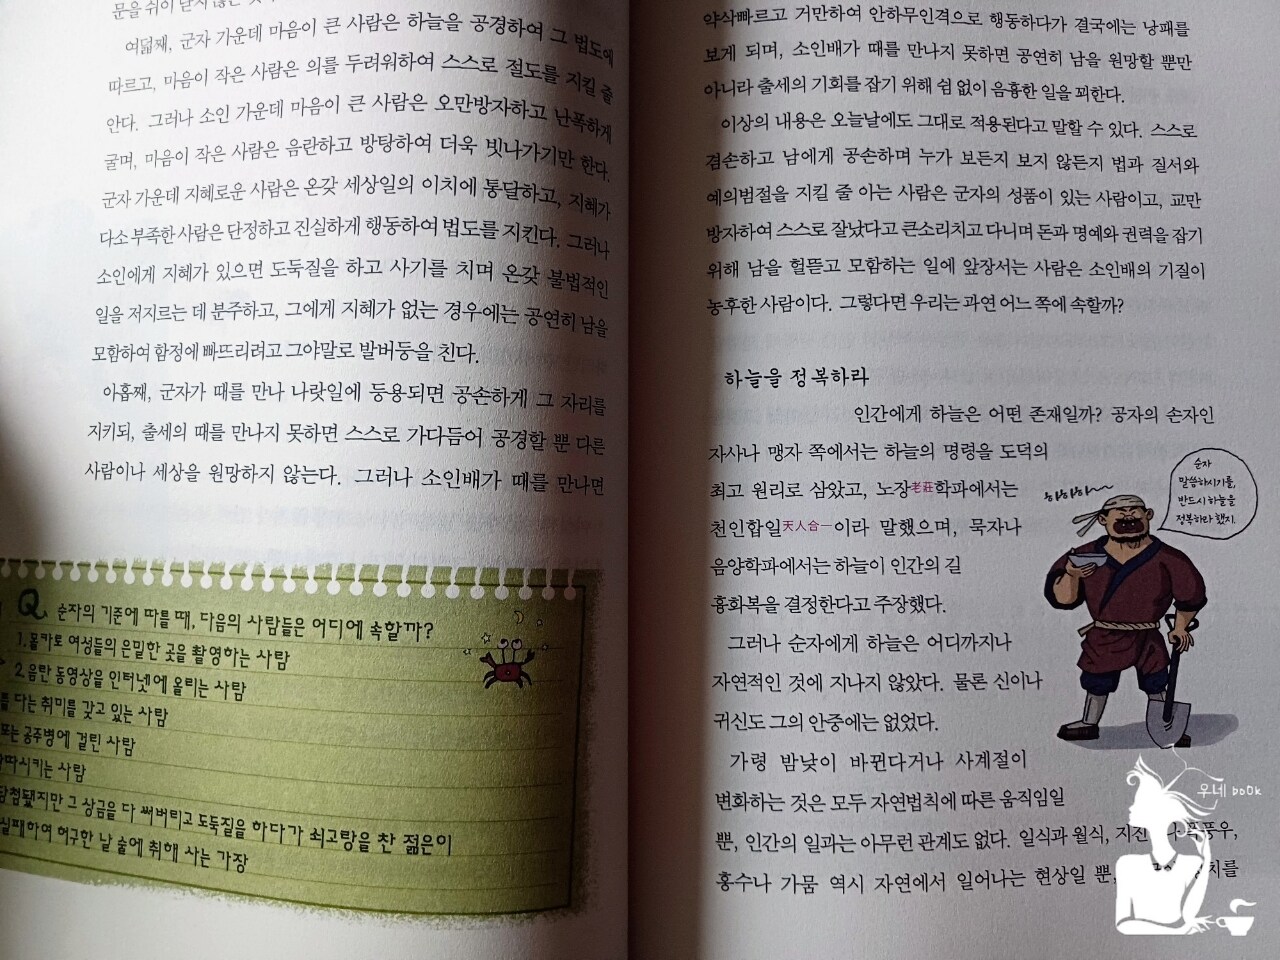 문을 쉬이 닫지 않는
여덟째, 군자 가운데 마음이 큰 사람은 하늘을 공경하여 그 법도에
따르고, 마음이 작은 사람은 의를 두려워하여 스스로 절도를 지킬 줄
안다. 그러나 소인 가운데 마음이 큰 사람은 오만방자하고 난폭하게
굴며, 마음이 작은 사람은 음란하고 방탕하여 더욱 빗나가기만 한다.
군자 가운데 지혜로운 사람은 온갖 세상일의 이치에 통달하고, 지혜가
다소 부족한 사람은 단정하고 진실하게 행동하여 법도를 지킨다. 그러나
소인에게 지혜가 있으면 도둑질을 하고 사기를 치며 온갖 불법적인
일을 저지르는 데 분주하고, 그에게 지혜가 없는 경우에는 공연히 남을
모함하여 함정에 빠뜨리려고 그야말로 발버둥을 친다.
아홉째, 군자가 때를 만나 나랏일에 등용되면 공손하게 그 자리를
지키되, 출세의 때를 만나지 못하면 스스로 가다듬어 공경할 뿐 다른
사람이나 세상을 원망하지 않는다. 그러나 소인배가 때를 만나면
Q. 순자의 기준에 따를 때, 다음의 사람들은 어디에 속할까?
1. 몰카로 여성들의 은밀한 곳을 촬영하는 사람
2. 음란 동영상을 인터넷에 올리는 사람
를 다는 취미를 갖고 있는 사람
또는 공주병에 걸린 사람
따시키는 사람
당첨됐지만 그 상금을 다 써버리고 도둑질을 하다가 쇠고랑을 찬 젊은이
실패하여 허구한 날 술에 취해 사는 가장
약삭빠르고 거만하여 안하무인격으로 행동하다가 결국에는 낭패를
보게 되며, 소인배가 때를 만나지 못하면 공연히 남을 원망할 뿐만
아니라 출세의 기회를 잡기 위해 쉼 없이 음흉한 일을 꾀한다.
이상의 내용은 오늘날에도 그대로 적용된다고 말할 수 있다. 스스로
겸손하고 남에게 공손하며 누가 보든지 보지 않든지 법과 질서와
예의범절을 지킬 줄 아는 사람은 군자의 성품이 있는 사람이고, 교만
방자하여 스스로 잘났다고 큰소리치고 다니며 돈과 명예와 권력을 잡기
위해 남을 헐뜯고 모함하는 일에 앞장서는 사람은 소인배의 기질이
농후한 사람이다. 그렇다면 우리는 과연 어느 쪽에 속할까?
하늘을 정복하라
인간에게 하늘은 어떤 존재일까? 공자의 손자인
자사나 맹자 쪽에서는 하늘의 명령을 도덕의
최고 원리로 삼았고, 노장老莊학파에서는
천인합일天人合一이라 말했으며, 묵자나
음양학파에서는 하늘이 인간의 길
흉화복을 결정한다고 주장했다.
그러나 순자에게 하늘은 어디까지나
자연적인 것에 지나지 않았다. 물론 신이나
귀신도 그의 안중에는 없었다.
가령 밤낮이 바뀐다거나 사계절이
변화하는 것은 모두 자연법칙에 따른 움직임일
뿐, 인간의 일과는 아무런 관계도 없다. 일식과 월식, 지진
홍수나 가뭄 역시 자연에서 일어나는 현상일 뿐,
하하하~
순자
말씀하시기를,
반드시 하늘을
정복하라 했지.
우네 book